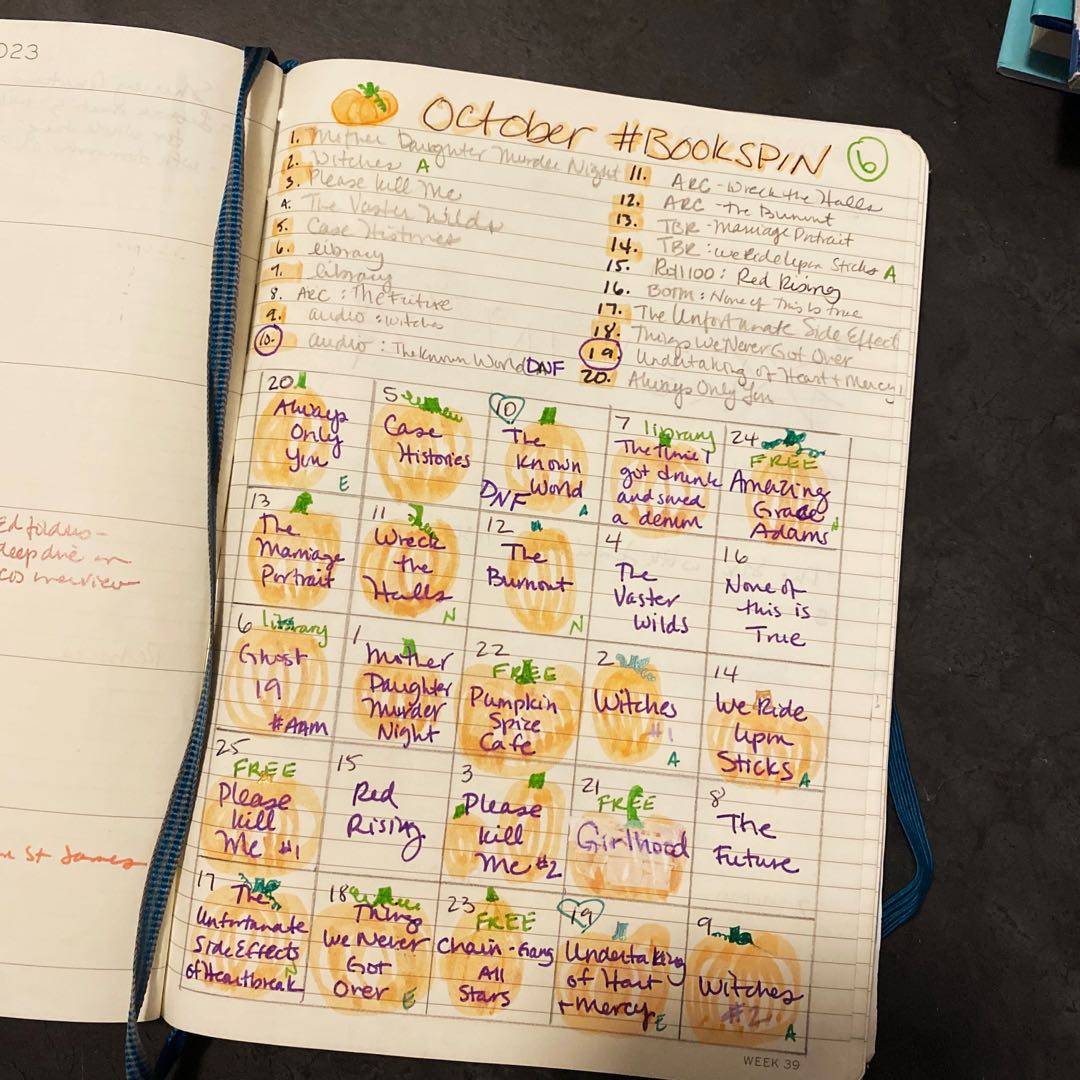 023
October #BOOKSPIN 6
1. Mother Daughter Murder Night
2. Witches A
3. Please Kill Me
4. The Vaster Wilds
5. Case Histories
6. library
7. library
8. ARC : The Future
9. audio : witches
10. audio : The Known World DNF
11. ARC - Wreck the Halls
12. ARC - The Burnout
13. TBR - Marriage Portrait
14. TBR : We Ride Upon Sticks A
15. Roll100 : Red Rising
16. BOTM : None of This is True
17. The Unfortunate Side Effect
18. Things We Never Got Over
19. Undertaking of Heart + Mercy
20. Always Only You
20 Always Only You E
5 Case Histories
10 The Known World DNF A
7 library The Time I got drunk and saved a demon
24 FREE Amazing Grace Adams N
13 The Marriage Portrait
11 Wreck the Halls N
12 The Burnout N
4 The Vaster Wilds
16 None of this is True
6 library Ghost 19 #AAM
1 Mother Daughter Murder Night
22 FREE Pumpkin Spice Cafe
2 Witches #1 A
14 We Ride Upon Sticks A
25 FREE Please Kill Me #1
15 Red Rising
3 Please Kill Me #2
21 FREE Girlhood
8 The Future
17 The Unfortunate Side Effects of Heartbreak N
18 Things We Never Got Over E
23 FREE Chain-Gang All Stars
19 Undertaking of Hart + Mercy E
9 Witches #2 A
Ed
deep dive on
St James
WEEK 39